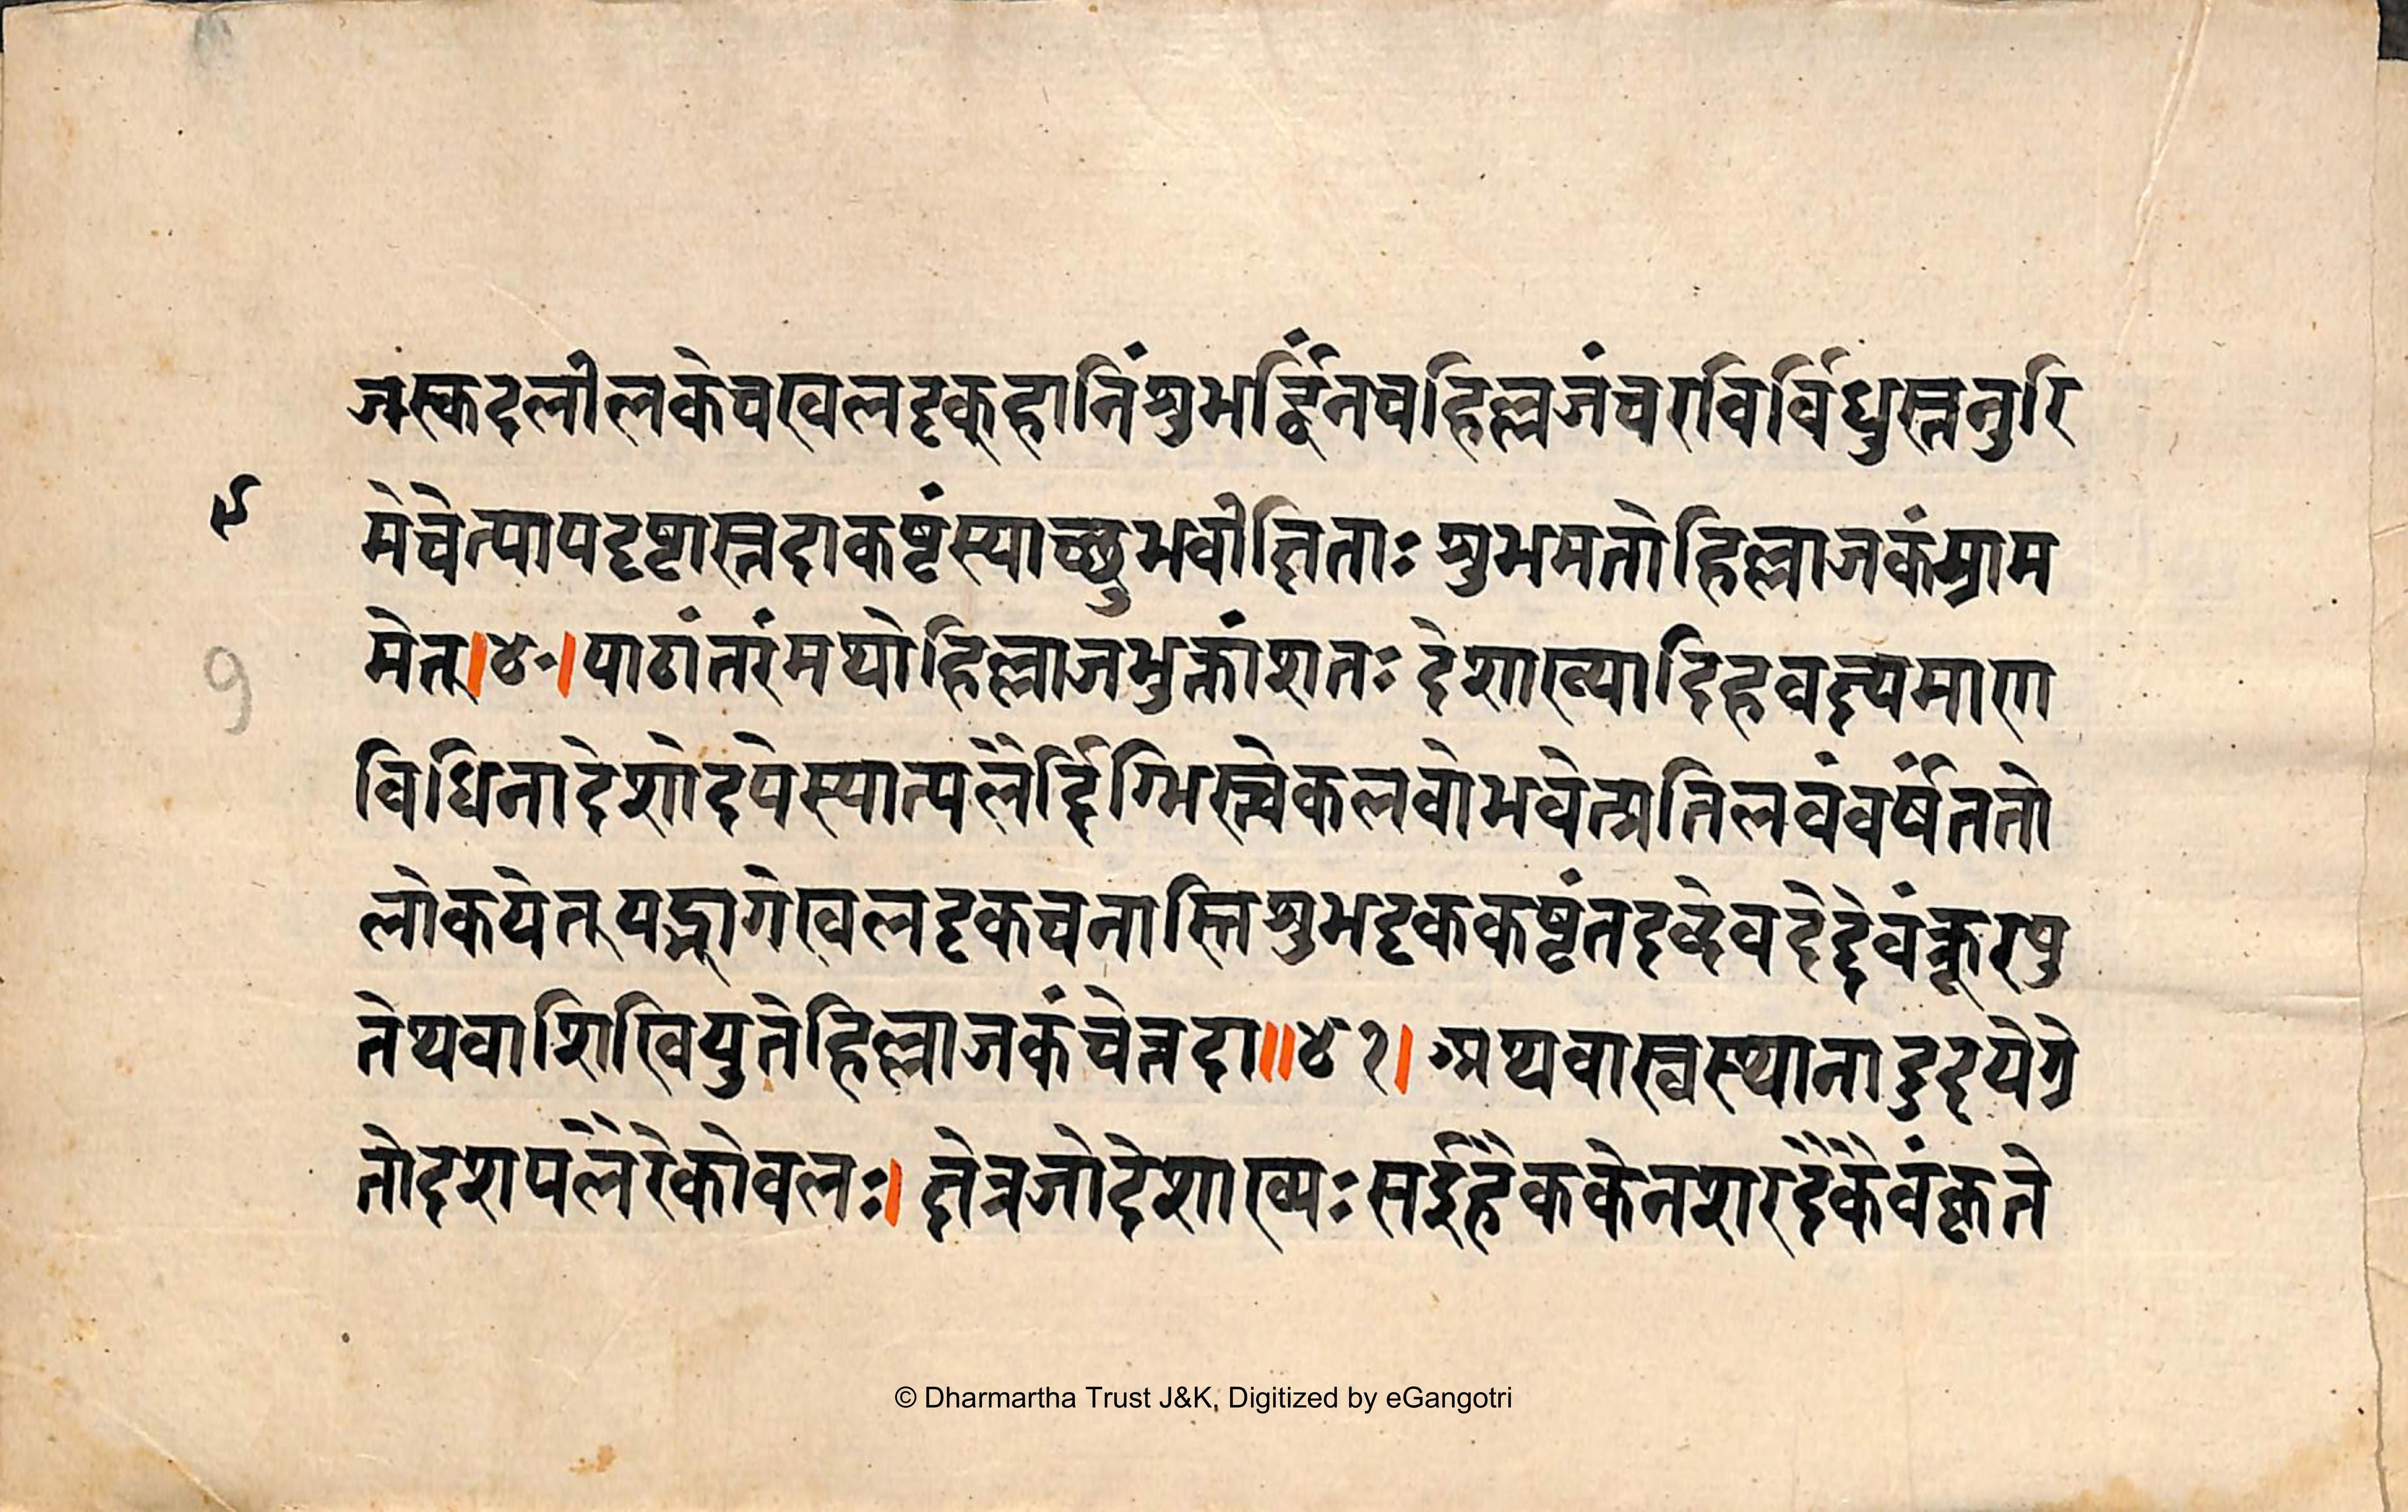 जस्कदलीलकेचखलदृक्हानिंशुभर्द्धिंनचहिल्लजंचरविर्विधुस्तनुरि
९
मेचेत्पापदृष्टास्तदाकष्टंस्याच्छुभवीक्षिताः शुभमतोहिल्लाजकंप्राम
मेत्।४॰।पाठांतरंमथोहिल्लाजभुक्तांशतः देशाख्यादिहवक्ष्यमाण
9
विधिनादेशोदपेस्यात्पलैर्दिग्भिस्त्वेकलवोभवेत्प्रतिलवंवर्षंततो
लोकयेत् यद्भागेखलदृकचनास्तिशुभदृककष्टंतदब्देवदेद्देवंक्रूरषु
तेथवाशिखियुतेहिल्लाजकंचेत्तदा॥४१। अथवास्वस्थानाद्रुदयेग्रे
तोदशपलैरेकोवलः। क्षेत्रजोदेशाख्यः सईहैककेनशरदैकैवंकृते
© Dharmartha Trust J&K, Digitized by eGangotri